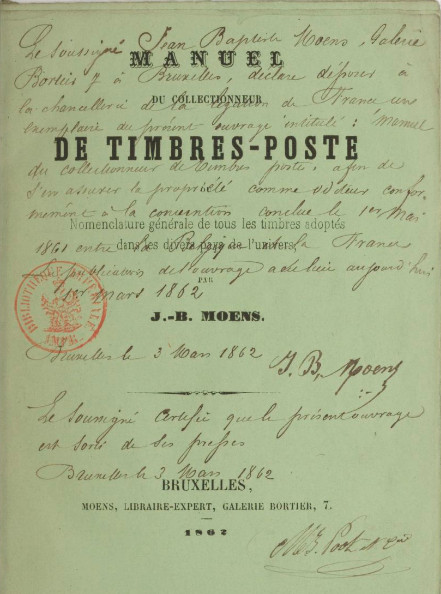 Le soussigné Jean Baptiste Moens, Galerie
MANUEL
Bortier 7 à Bruxelles, déclare déposer à
DU COLLECTIONNEUR
la chancellerie de la légation de France un
exemplaire du présent ouvrage intitulé : Manuel
DE TIMBRES-POSTE
du collectionneur de timbres poste, afin de
s'en assurer la propriété comme éditeur confor-
mément à la convention conclue le 1er Mai
Nomenclature générale de tous les timbres adoptés
1861 entre la Belgique et la France
dans les divers pays de l'univers,
La publication de l'ouvrage a eu lieu aujourd'hui
PAR
1er mars 1862
BIBLIOTHÈQUE IMPÉRIALE
IMPR.
J.-B. MOENS.
Bruxelles le 3 Mars 1862
J. B. Moens
Le soussigné certifie que le présent ouvrage
est sorti de ses presses
Bruxelles le 3 Mars 1862
BRUXELLES,
MOENS, LIBRAIRE-EXPERT, GALERIE BORTIER, 7.
1862